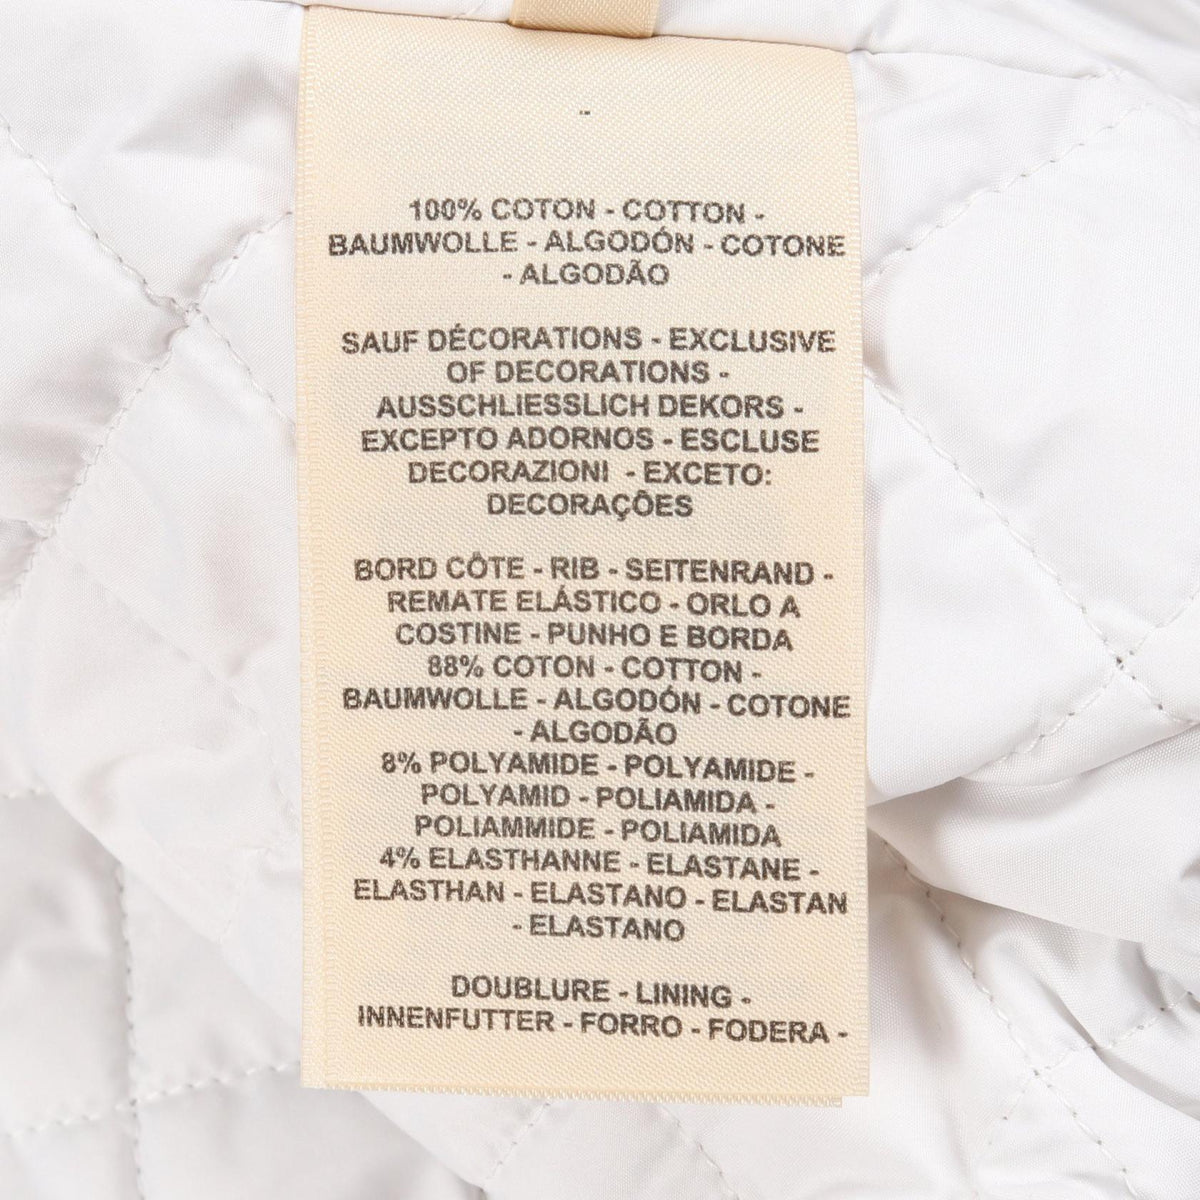 100% COTON - COTTON -
BAUMWOLLE - ALGODÓN - COTONE
- ALGODÃO
SAUF DÉCORATIONS - EXCLUSIVE
OF DECORATIONS -
AUSSCHLIESSLICH DEKORS -
EXCEPTO ADORNOS - ESCLUSE
DECORAZIONI - EXCETO:
DECORAÇÕES
BORD CÔTE - RIB - SEITENRAND -
REMATE ELÁSTICO - ORLO A
COSTINE - PUNHO E BORDA
88% COTON - COTTON -
BAUMWOLLE - ALGODÓN - COTONE
- ALGODÃO
8% POLYAMIDE - POLYAMIDE -
POLYAMID - POLIAMIDA -
POLIAMMIDE - POLIAMIDA
4% ELASTHANNE - ELASTANE -
ELASTHAN - ELASTANO - ELASTAN
- ELASTANO
DOUBLURE - LINING -
INNENFUTTER - FORRO - FODERA -